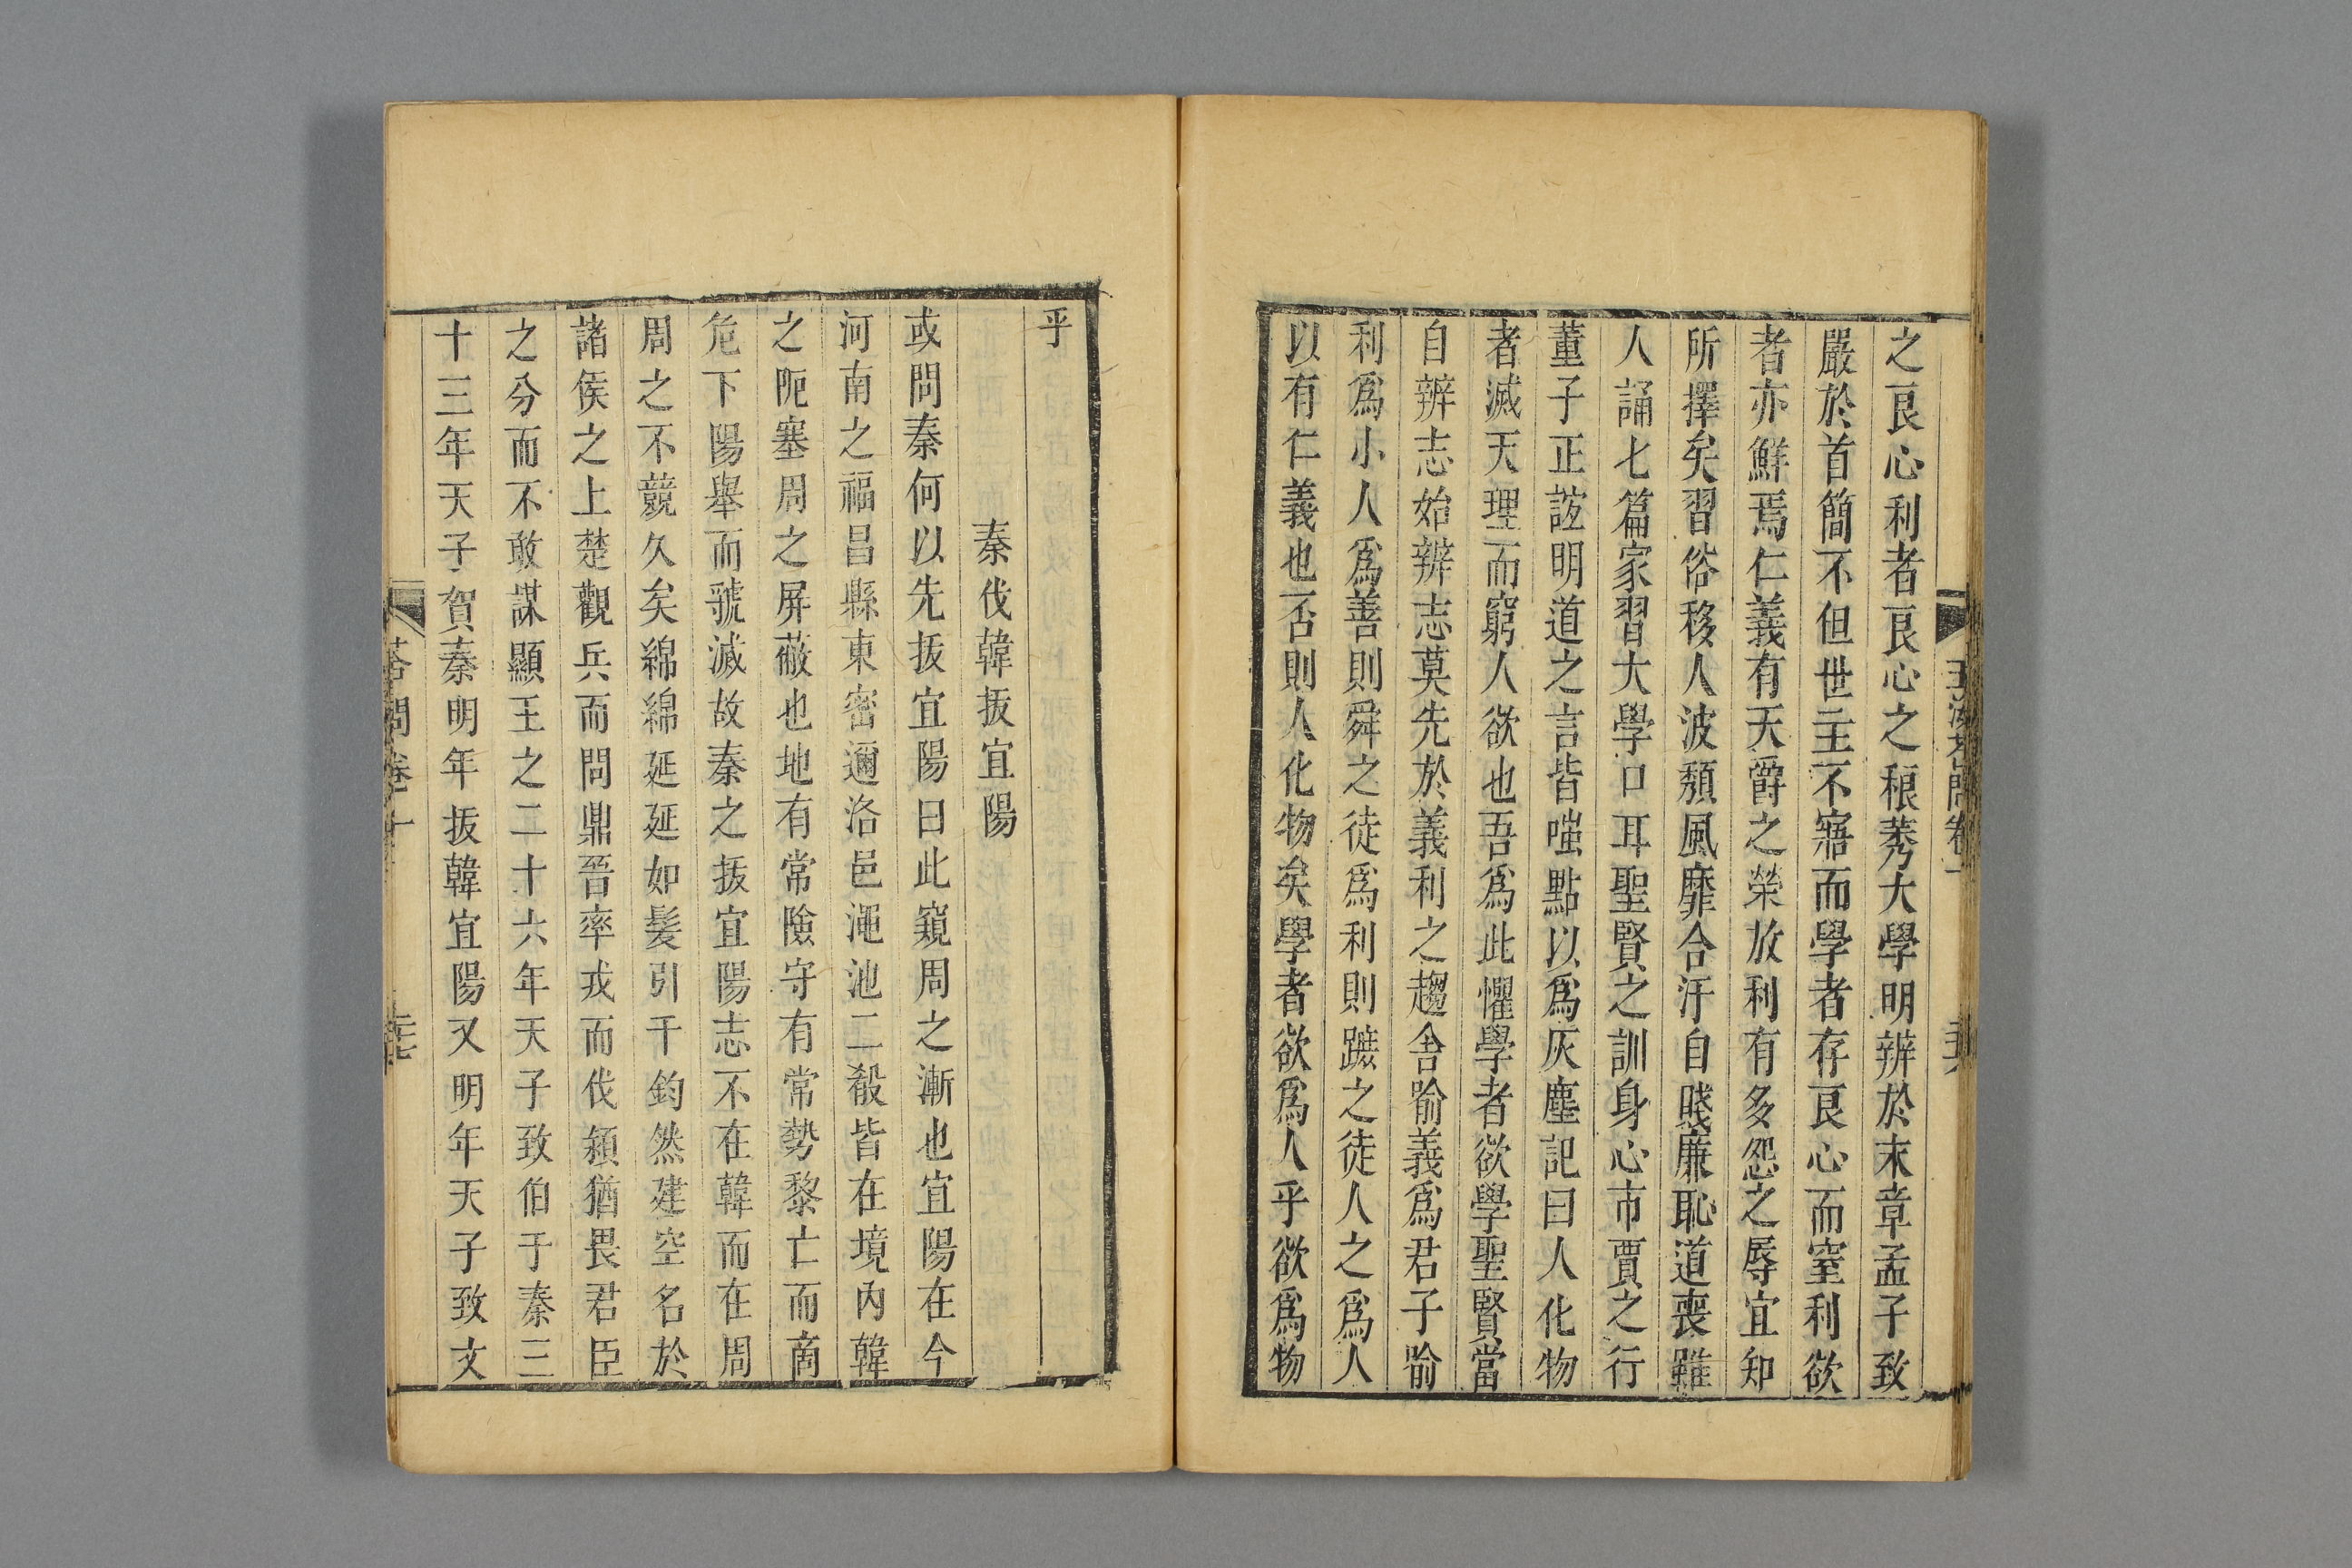 之良心利者良心之稂莠大學明辨於末章孟子致
嚴於首簡不但世主不寤而學者存良心而窒利欲
者亦鮮焉仁義有天爵之榮放利有多怨之辱宜知
所擇矣習俗移人波頹風靡合汙自賤廉恥道喪雖
人誦七篇家習大學口耳聖賢之訓身心市賈之行
董子正誼明道之言皆嗤點以為灰塵記曰人化物
者滅天理而窮人欲也吾為此懼學者欲學聖賢當
自辨志始辨志莫先於義利之趨舍喻義為君子喻
利為小人為善則舜之徒為利則蹠之徒人之為人
以有仁義也否則人化物矣學者欲為人乎欲為物
乎
秦伐韓拔宜陽
或問秦何以先拔宜陽曰此窺周之漸也宜陽在今
河南之福昌縣東密邇洛邑澠池二殽皆在境內韓
之阨塞周之屏蔽也地有常險守有常勢黎亡而商
危下陽舉而虢滅故秦之拔宜陽志不在韓而在周
周之不競久矣綿綿延延如髮引千鈞然建空名於
諸侯之上楚觀兵而問鼎晉率戎而伐潁猶畏君臣
之分而不敢謀顯王之二十六年天子致伯于秦三
十三年天子賀秦明年拔韓宜陽又明年天子致文
答問卷十